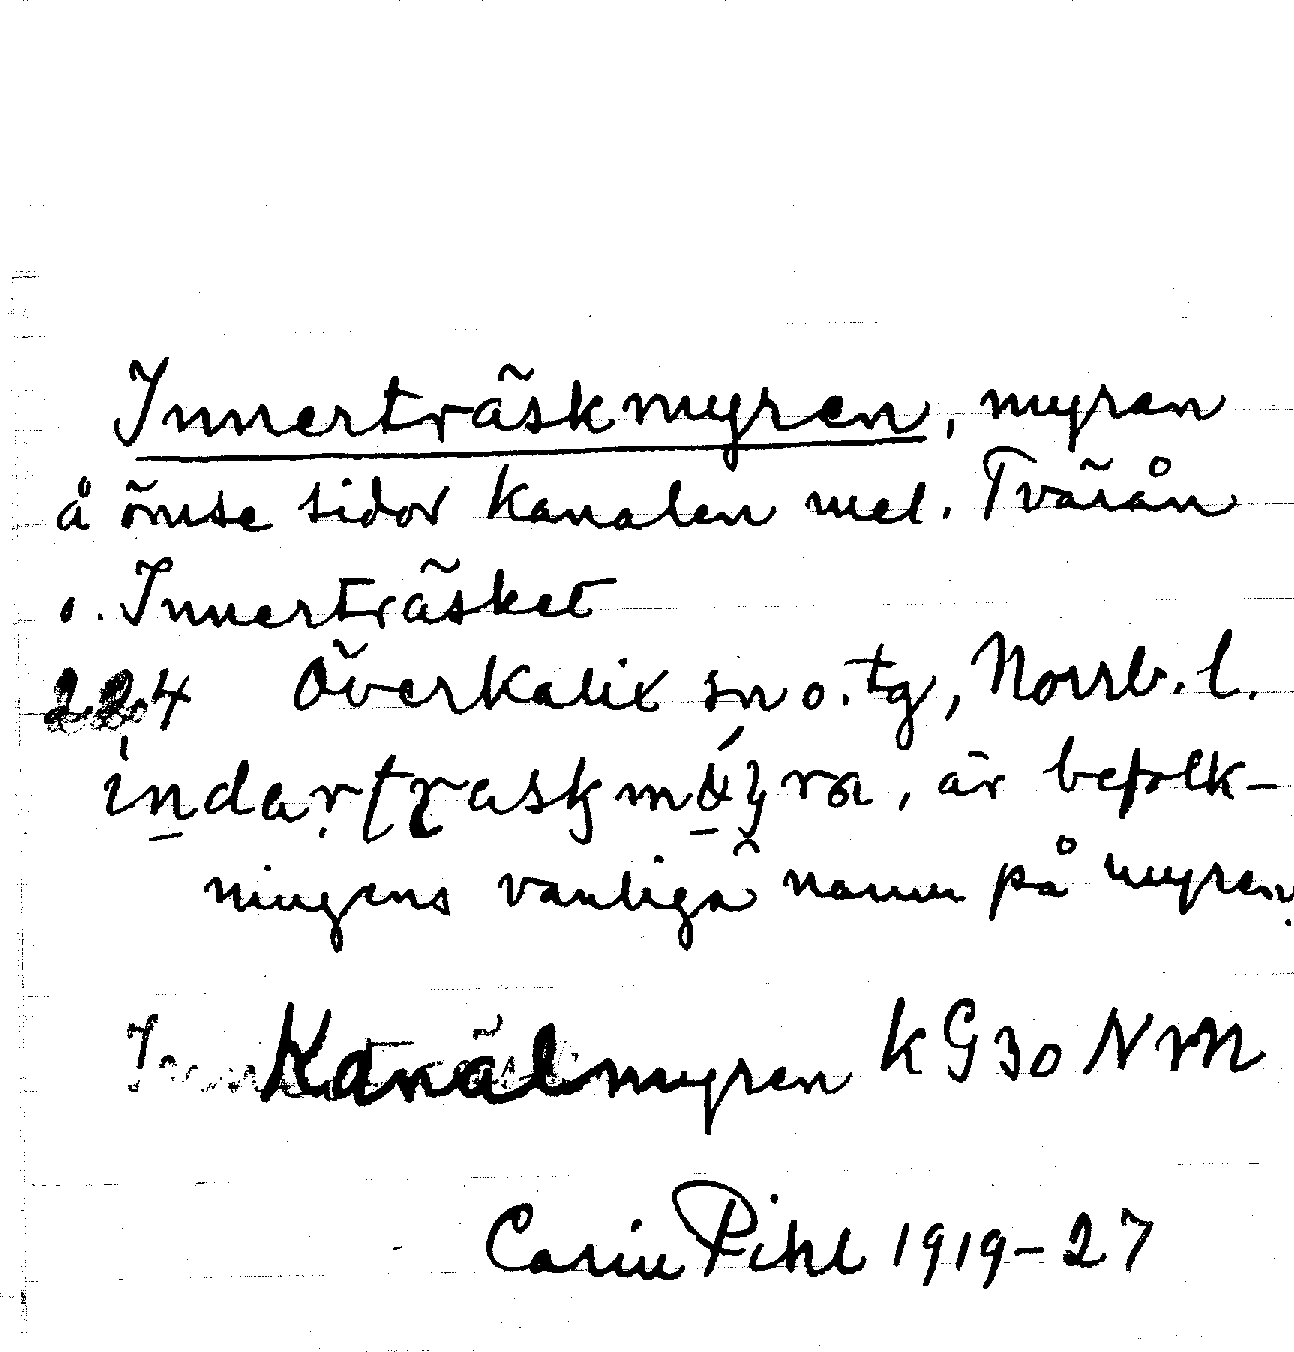 Innerträskmyren, myren
å ömse sidor kanalen mel. Tvärån
o. Innerträsket
224 Överkalix sn o. tg, Norrb. l.
är befolk-
ningens vanliga namn på myren.
Kanalmyren kG30NVm
Carin Pihl 1919-27